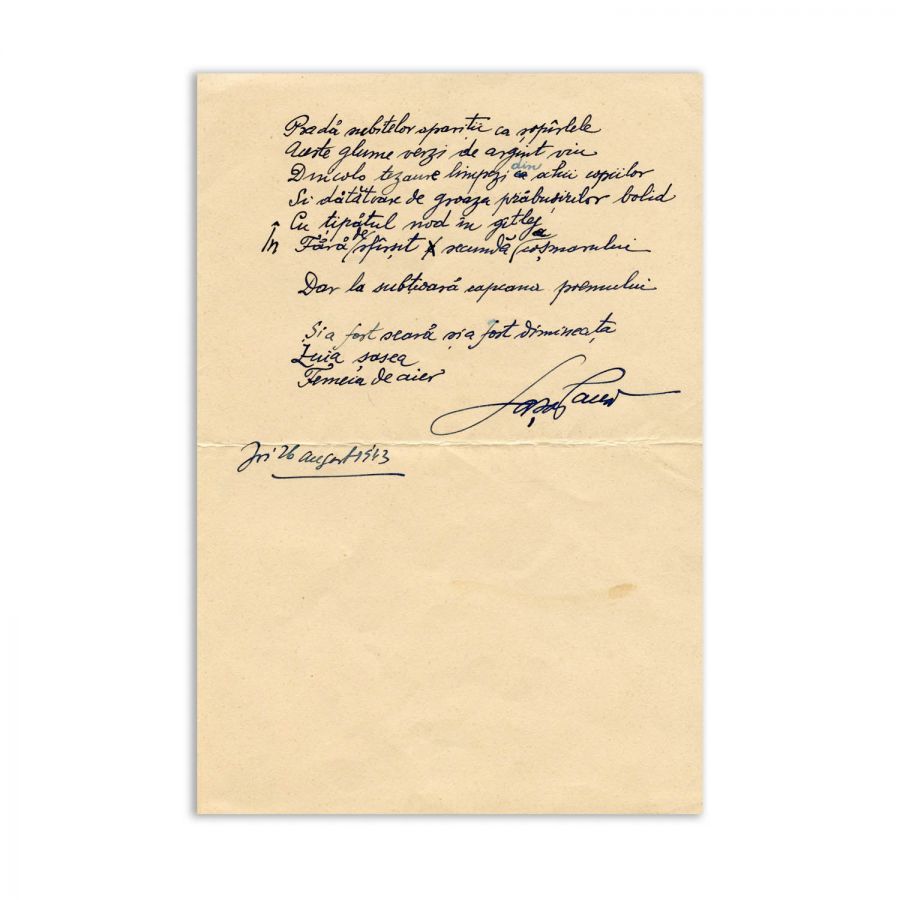 Pradă subitelor apariții ca șopîrlele
Aceste glume verzi de argint viu
Dincolo tezaure limpezi din ochii copiilor
Și dătătoare de groaza prăbușirilor bolid
Cu țipătul nod în gîtlej
În Fără de sfîrșit secundă a coșmarului
Dar la subțioară capcana premului
Și a fost seară și a fost dimineața
Ziua șasea
Femeia de aier
Joi 26 august 1943